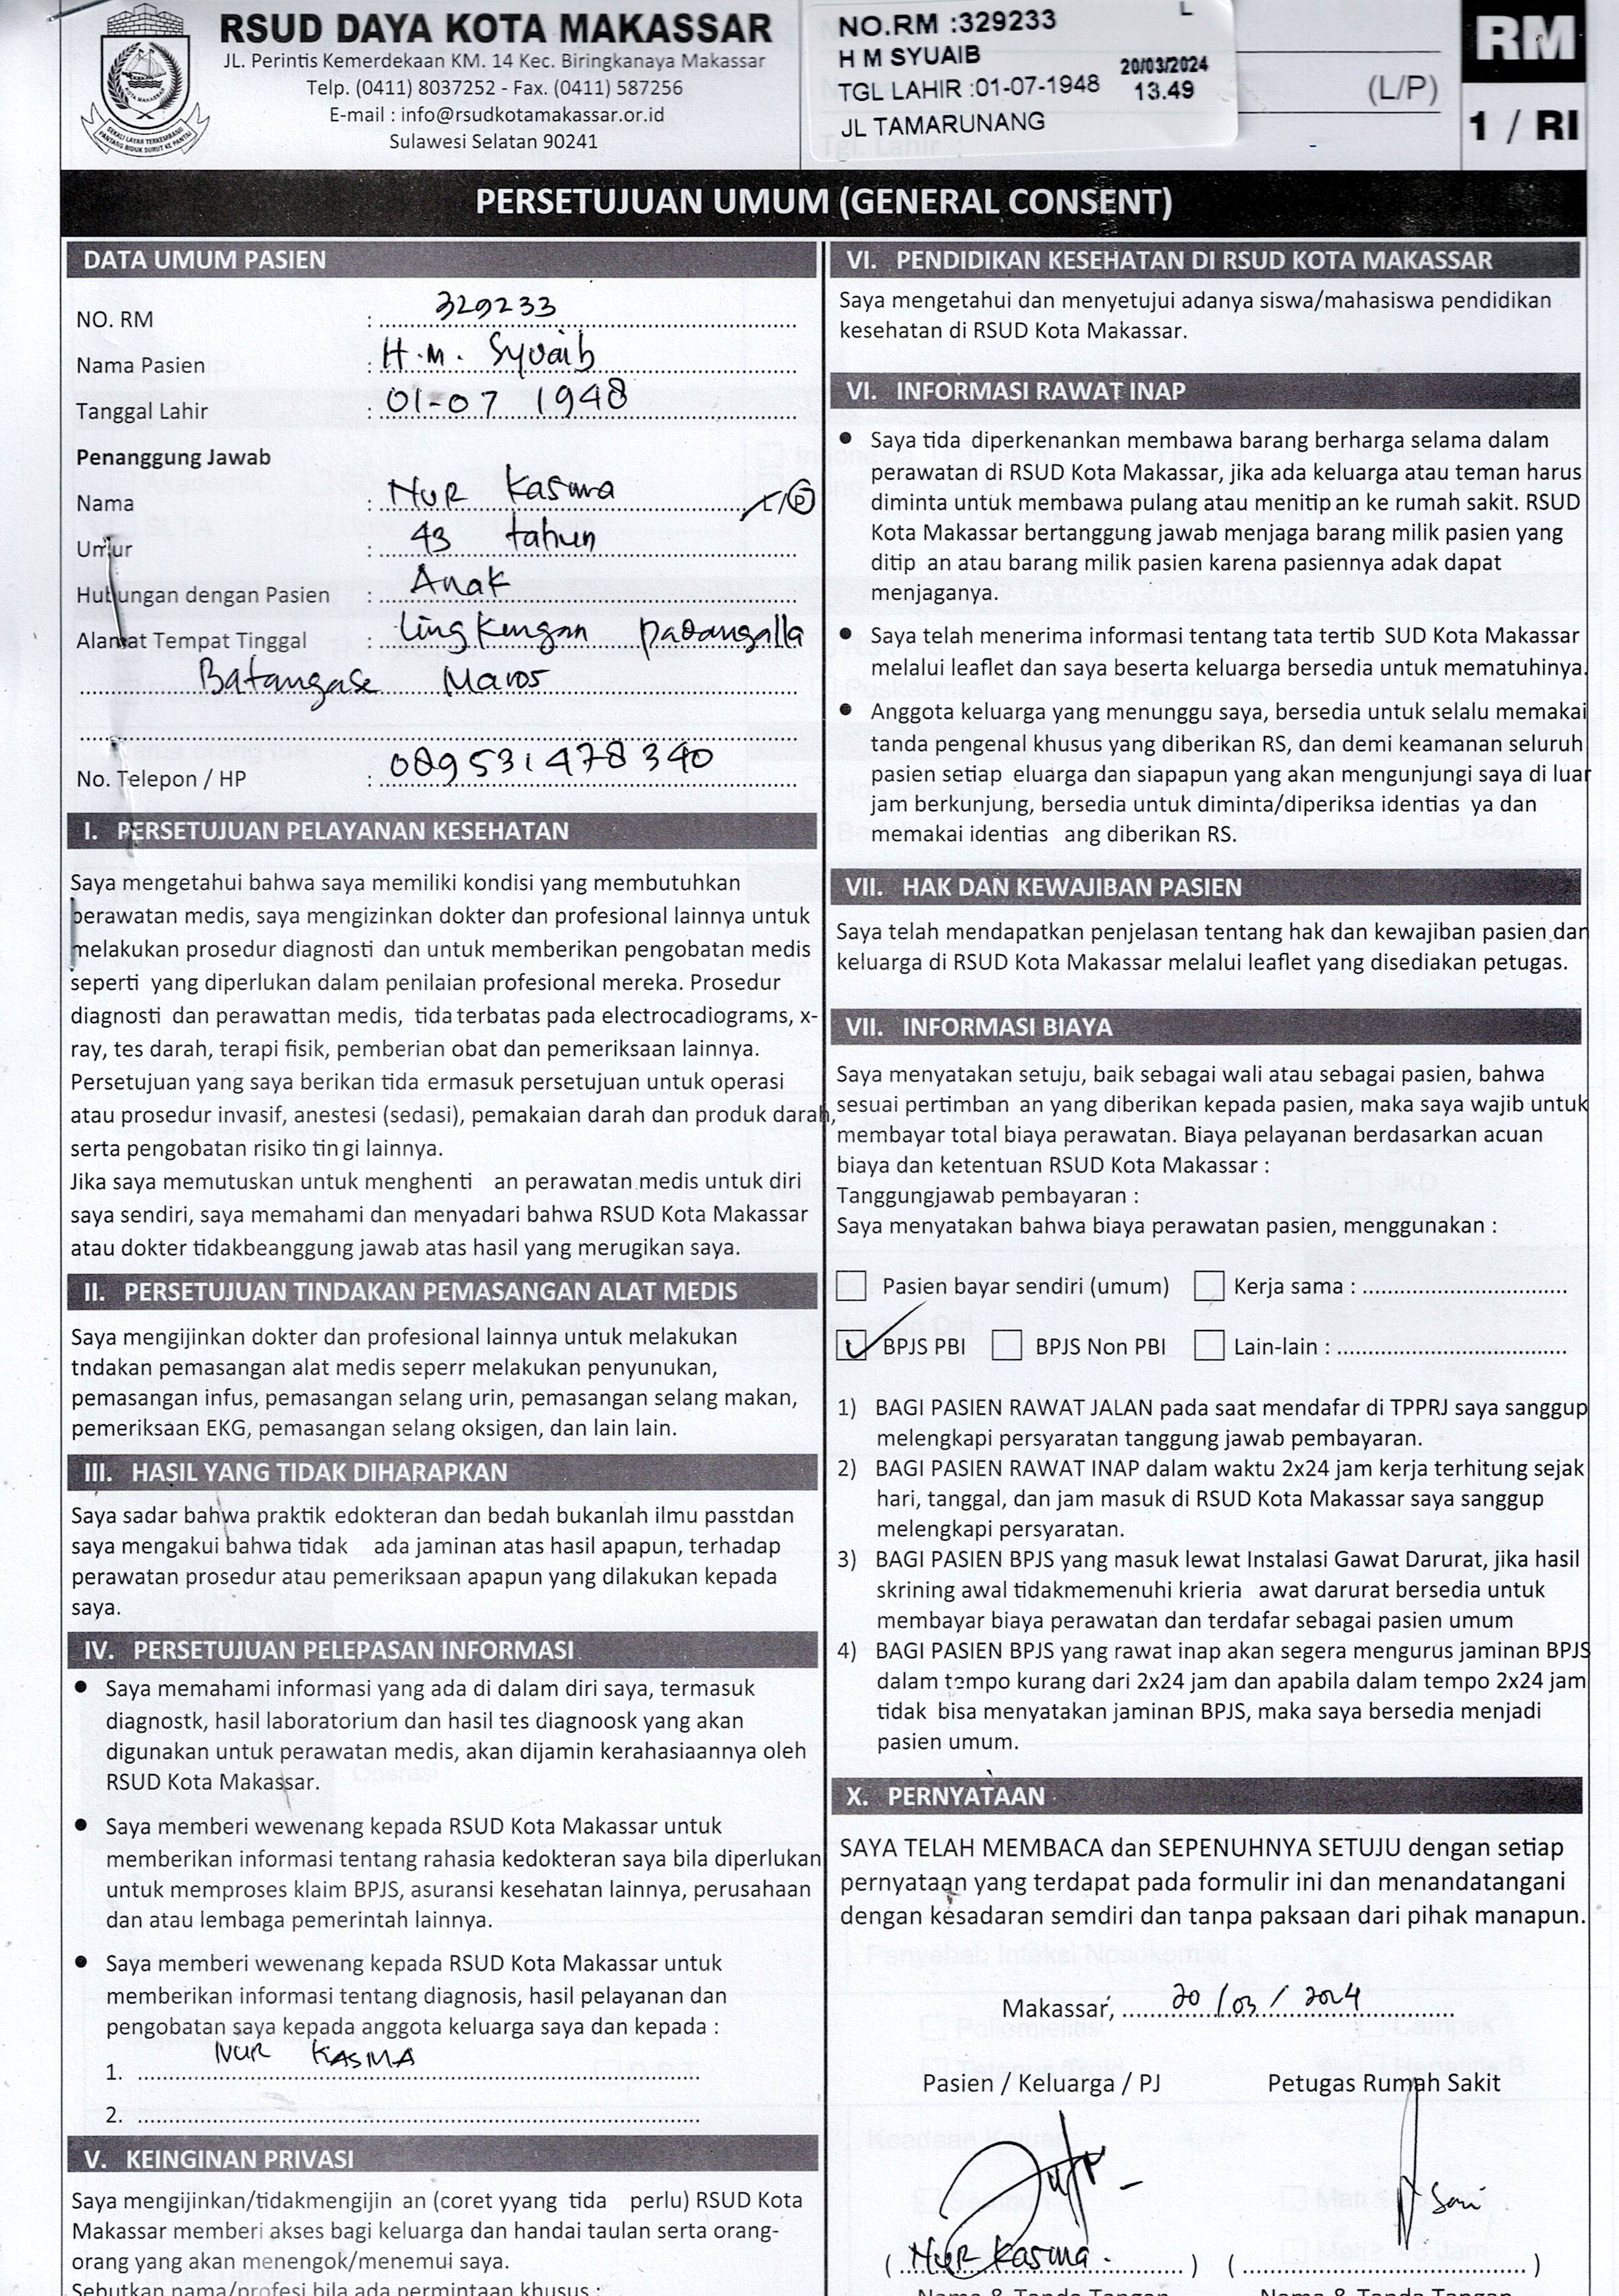 RSUD DAYA KOTA MAKASSAR
JL. Perintis Kemerdekaan KM. 14 Kec. Biringkanaya Makassar
Telp. (0411) 8037252 - Fax. (0411) 587256
E-mail : info@rsudkotamakassar.or.id
Sulawesi Selatan 90241
KOTA MAKASSAR
SEKALI LAYAR TERKEMBANG
PANTANG BIDUK SURUT KE PANTAI
NO.RM :329233
L
H M SYUAIB
20/03/2024
TGL LAHIR :01-07-1948
13.49
JL TAMARUNANG
Tgl. Lahir :
(L/P)
RM
1 / RI
PERSETUJUAN UMUM (GENERAL CONSENT)
DATA UMUM PASIEN
NO. RM : 329233
Nama Pasien : H.M. Syuaib
Tanggal Lahir : 01-07 1948
Penanggung Jawab
Nama : Nur Kasma L/P
Umur : 43 tahun
Hubungan dengan Pasien : Anak
Alamat Tempat Tinggal : Lingkungan padangalla
Batangase Maros
No. Telepon / HP : 089531478340
I. PERSETUJUAN PELAYANAN KESEHATAN
Saya mengetahui bahwa saya memiliki kondisi yang membutuhkan
perawatan medis, saya mengizinkan dokter dan profesional lainnya untuk
melakukan prosedur diagnosti dan untuk memberikan pengobatan medis
seperti yang diperlukan dalam penilaian profesional mereka. Prosedur
diagnosti dan perawattan medis, tida terbatas pada electrocadiograms, x-
ray, tes darah, terapi fisik, pemberian obat dan pemeriksaan lainnya.
Persetujuan yang saya berikan tida ermasuk persetujuan untuk operasi
atau prosedur invasif, anestesi (sedasi), pemakaian darah dan produk darah,
serta pengobatan risiko tin gi lainnya.
Jika saya memutuskan untuk menghenti an perawatan medis untuk diri
saya sendiri, saya memahami dan menyadari bahwa RSUD Kota Makassar
atau dokter tidakbeanggung jawab atas hasil yang merugikan saya.
II. PERSETUJUAN TINDAKAN PEMASANGAN ALAT MEDIS
Saya mengijinkan dokter dan profesional lainnya untuk melakukan
tndakan pemasangan alat medis seperr melakukan penyunukan,
pemasangan infus, pemasangan selang urin, pemasangan selang makan,
pemeriksaan EKG, pemasangan selang oksigen, dan lain lain.
III. HASIL YANG TIDAK DIHARAPKAN
Saya sadar bahwa praktik edokteran dan bedah bukanlah ilmu passtdan
saya mengakui bahwa tidak ada jaminan atas hasil apapun, terhadap
perawatan prosedur atau pemeriksaan apapun yang dilakukan kepada
saya.
IV. PERSETUJUAN PELEPASAN INFORMASI
• Saya memahami informasi yang ada di dalam diri saya, termasuk
diagnostk, hasil laboratorium dan hasil tes diagnoosk yang akan
digunakan untuk perawatan medis, akan dijamin kerahasiaannya oleh
RSUD Kota Makassar.
• Saya memberi wewenang kepada RSUD Kota Makassar untuk
memberikan informasi tentang rahasia kedokteran saya bila diperlukan
untuk memproses klaim BPJS, asuransi kesehatan lainnya, perusahaan
dan atau lembaga pemerintah lainnya.
• Saya memberi wewenang kepada RSUD Kota Makassar untuk
memberikan informasi tentang diagnosis, hasil pelayanan dan
pengobatan saya kepada anggota keluarga saya dan kepada :
1. NUR KASMA
2.
V. KEINGINAN PRIVASI
Saya mengijinkan/tidakmengijin an (coret yyang tida perlu) RSUD Kota
Makassar memberi akses bagi keluarga dan handai taulan serta orang-
orang yang akan menengok/menemui saya.
Sebutkan nama/profesi bila ada permintaan khusus :
VI. PENDIDIKAN KESEHATAN DI RSUD KOTA MAKASSAR
Saya mengetahui dan menyetujui adanya siswa/mahasiswa pendidikan
kesehatan di RSUD Kota Makassar.
VI. INFORMASI RAWAT INAP
• Saya tida diperkenankan membawa barang berharga selama dalam
perawatan di RSUD Kota Makassar, jika ada keluarga atau teman harus
diminta untuk membawa pulang atau menitip an ke rumah sakit. RSUD
Kota Makassar bertanggung jawab menjaga barang milik pasien yang
ditip an atau barang milik pasien karena pasiennya adak dapat
menjaganya.
• Saya telah menerima informasi tentang tata tertib SUD Kota Makassar
melalui leaflet dan saya beserta keluarga bersedia untuk mematuhinya.
• Anggota keluarga yang menunggu saya, bersedia untuk selalu memakai
tanda pengenal khusus yang diberikan RS, dan demi keamanan seluruh
pasien setiap eluarga dan siapapun yang akan mengunjungi saya di luar
jam berkunjung, bersedia untuk diminta/diperiksa identias ya dan
memakai identias ang diberikan RS.
VII. HAK DAN KEWAJIBAN PASIEN
Saya telah mendapatkan penjelasan tentang hak dan kewajiban pasien dan
keluarga di RSUD Kota Makassar melalui leaflet yang disediakan petugas.
VII. INFORMASI BIAYA
Saya menyatakan setuju, baik sebagai wali atau sebagai pasien, bahwa
sesuai pertimban an yang diberikan kepada pasien, maka saya wajib untuk
membayar total biaya perawatan. Biaya pelayanan berdasarkan acuan
biaya dan ketentuan RSUD Kota Makassar :
Tanggungjawab pembayaran :
Saya menyatakan bahwa biaya perawatan pasien, menggunakan :
Pasien bayar sendiri (umum) Kerja sama :
BPJS PBI BPJS Non PBI Lain-lain :
1) BAGI PASIEN RAWAT JALAN pada saat mendafar di TPPRJ saya sanggup
melengkapi persyaratan tanggung jawab pembayaran.
2) BAGI PASIEN RAWAT INAP dalam waktu 2x24 jam kerja terhitung sejak
hari, tanggal, dan jam masuk di RSUD Kota Makassar saya sanggup
melengkapi persyaratan.
3) BAGI PASIEN BPJS yang masuk lewat Instalasi Gawat Darurat, jika hasil
skrining awal tidakmemenuhi krieria awat darurat bersedia untuk
membayar biaya perawatan dan terdafar sebagai pasien umum
4) BAGI PASIEN BPJS yang rawat inap akan segera mengurus jaminan BPJS
dalam tempo kurang dari 2x24 jam dan apabila dalam tempo 2x24 jam
tidak bisa menyatakan jaminan BPJS, maka saya bersedia menjadi
pasien umum.
X. PERNYATAAN
SAYA TELAH MEMBACA dan SEPENUHNYA SETUJU dengan setiap
pernyataan yang terdapat pada formulir ini dan menandatangani
dengan kesadaran semdiri dan tanpa paksaan dari pihak manapun.
Makassar, 20/03/2024
Pasien / Keluarga / PJ Petugas Rumah Sakit
Sari
( Nur Kasma. ) ( )
Nama & Tanda Tangan Nama & Tanda Tangan